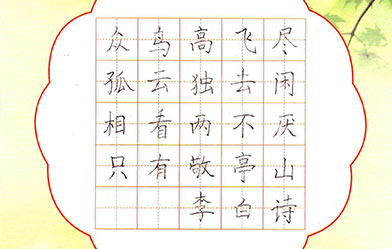 众鸟高飞尽
孤云独去闲
相看两不厌
只有敬亭山
李白诗